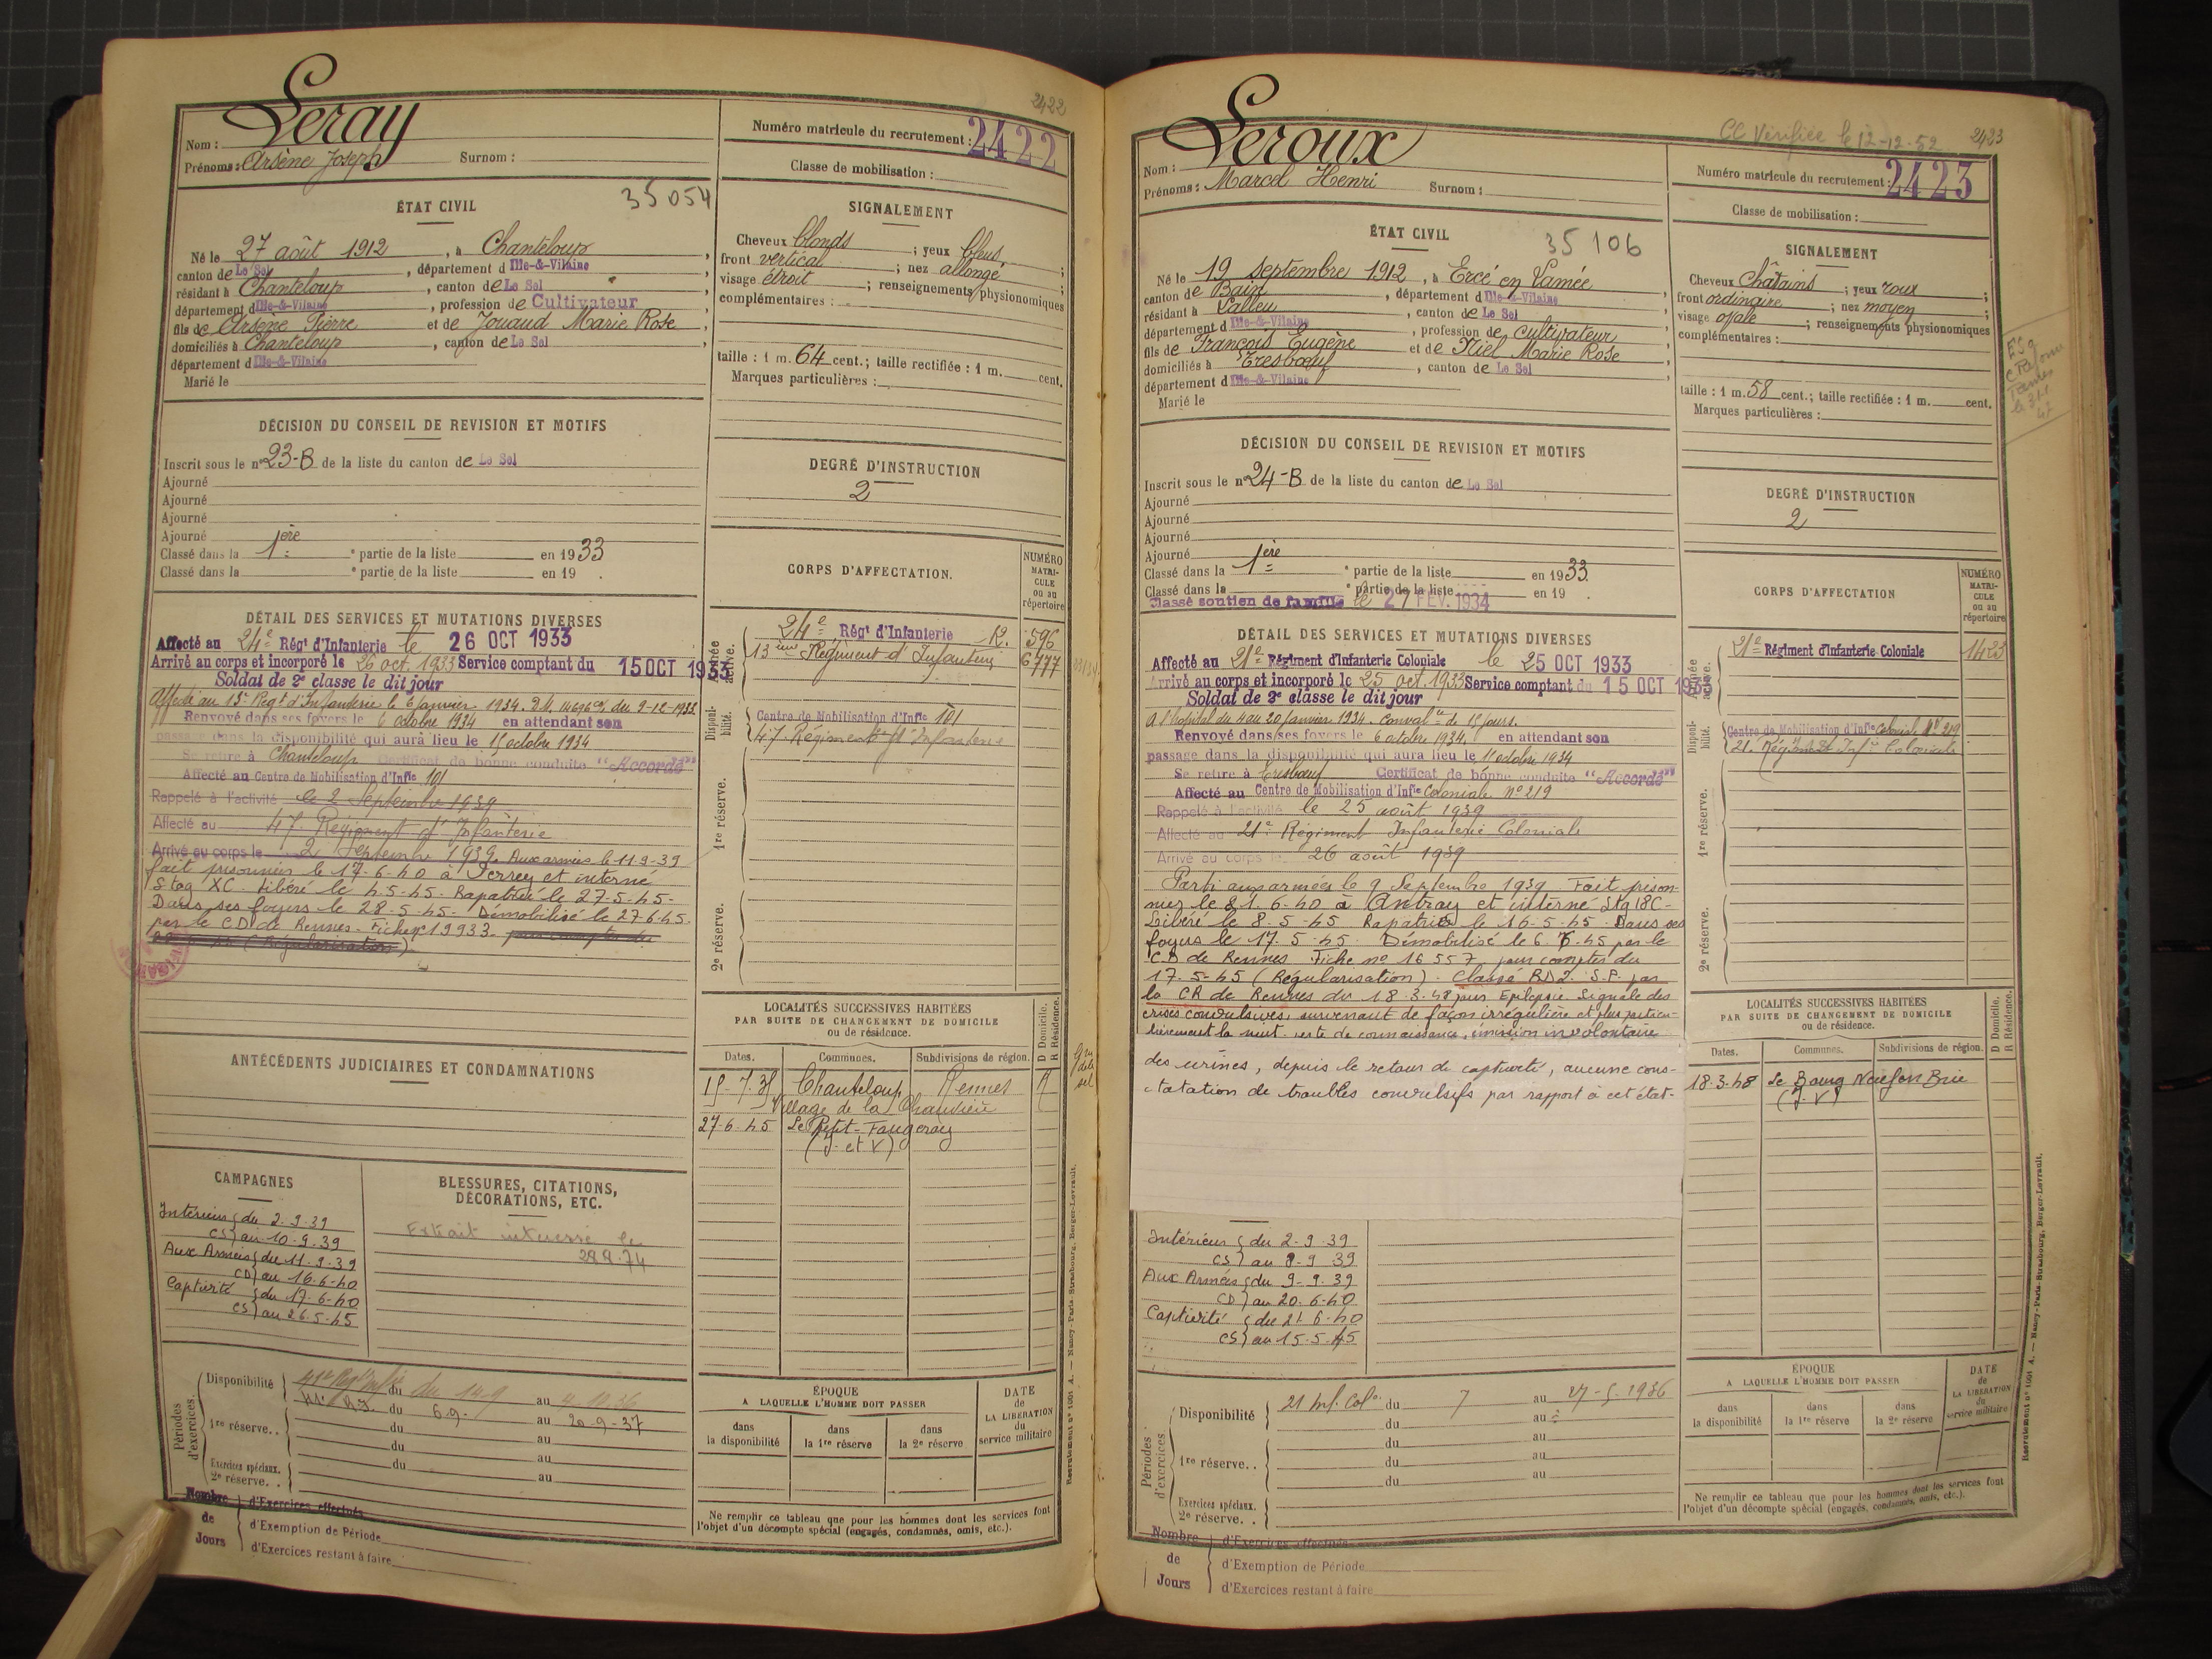 2422
Nom : Leray
Prénoms : Arsène Joseph Surnom :
Numéro matricule du recrutement : 2422
Classe de mobilisation :
35054
ÉTAT CIVIL
Né le 27 août 1912, à Chanteloup,
canton de Le Sel, département d Ille-&-Vilaine
résidant à Chanteloup, canton de Le Sel
département d Ille-&-Vilaine, profession de Cultivateur
fils de Arsène Pierre et de Jouaud Marie Rose,
domiciliés à Chanteloup, canton de Le Sel
département d Ille-&-Vilaine
Marié le
SIGNALEMENT
Cheveux blonds ; yeux bleus ;
front vertical ; nez allongé ;
visage étroit ; renseignements physionomiques
complémentaires :
taille : 1 m. 64 cent.; taille rectifiée : 1 m. cent.
Marques particulières :
DÉCISION DU CONSEIL DE REVISION ET MOTIFS
Inscrit sous le n° 23-B de la liste du canton de Le Sel
Ajourné
Ajourné
Ajourné
Ajourné
Classé dans la 1ère partie de la liste en 1933
Classé dans la e partie de la liste en 19 .
DEGRÉ D'INSTRUCTION
2
DÉTAIL DES SERVICES ET MUTATIONS DIVERSES
Affecté au 24e Régt d'Infanterie le 26 OCT 1933
Arrivé au corps et incorporé le 26 oct. 1933 Service comptant du 15 OCT 1933
Soldat de 2e classe le dit jour
Affecté au 13e Régt d'Infanterie le 6 janvier 1934. D.M. 14696 du 9-12-1933
Renvoyé dans ses foyers le 6 octobre 1934 en attendant son
passage dans la disponibilité qui aura lieu le 15 octobre 1934
Se retire à Chanteloup Certificat de bonne conduite "Accordé"
Affecté au Centre de Mobilisation d'Infie 101
Rappelé à l'activité le 2 Septembre 1939
Affecté au 47. Régiment d'Infanterie
Arrivé au corps le 2 Septembre 1939. Aux armées le 11-9-39
fait prisonnier le 17-6-40 à et interné
Stag XC. Libéré le 4-5-45. Rapatrié le 27-5-45-
Dans ses foyers le 28-5-45- Démobilisé le 27-6-45.
par le CD de Rennes- Fiche n° 19933-
(Régularisation)
CORPS D'AFFECTATION.
NUMÉRO MATRICULE ou au répertoire
Armée active.
24e Régt d'Infanterie R. 596
13ème Régiment d'Infanterie 6777
Disponibilité.
Centre de Mobilisation d'Infie 101
47. Régiment d'Infanterie
1re réserve.
2e réserve.
ANTÉCÉDENTS JUDICIAIRES ET CONDAMNATIONS
LOCALITÉS SUCCESSIVES HABITÉES
PAR SUITE DE CHANGEMENT DE DOMICILE
ou de résidence.
D Domicile.
R Résidence.
Dates. Communes. Subdivisions de région.
15-7-35 Chanteloup Rennes R
Village de la Chauvière
27-6-45 Le Petit-Fougeray
(I. et V)
CAMPAGNES
Intérieur du 2-9-39
CS au 10-9-39
Aux Armées du 11-9-39
CD au 16-6-40
Captivité du 17-6-40
CS au 26-5-45
BLESSURES, CITATIONS,
DÉCORATIONS, ETC.
Extrait interessé le
28.9.74
Périodes d'exercices.
Disponibilité du 14.9 au
du 6.9. au 20-9-37
1re réserve.. du au
du au
Exercices spéciaux. du au
2e réserve.. au
Nombre de Jours
d'Exercices effectués
d'Exemption de Période
d'Exercices restant à faire
ÉPOQUE
A LAQUELLE L'HOMME DOIT PASSER
dans la disponibilité
dans la 1re réserve
dans la 2e réserve
DATE de LA LIBÉRATION du service militaire
Ne remplir ce tableau que pour les hommes dont les services font
l'objet d'un décompte spécial (engagés, condamnés, omis, etc.).
Recrutement n° 1001 A. — Nancy-Paris-Strasbourg, Berger-Levrault.
CC Vérifiée le 12-12-52 2423
Nom : Leroux
Prénoms : Marcel Henri Surnom :
Numéro matricule du recrutement : 2423
Classe de mobilisation :
35106
ÉTAT CIVIL
Né le 19 septembre 1912, à Ercé en Lamée,
canton de Bain, département d Ille-&-Vilaine
résidant à Lalleu, canton de Le Sel
département d Ille-&-Vilaine, profession de cultivateur
fils de François Eugène et de Niel Marie Rose
domiciliés à Tresbœuf, canton de Le Sel
département d Ille-&-Vilaine
Marié le
SIGNALEMENT
Cheveux Châtains ; yeux roux ;
front ordinaire ; nez moyen ;
visage ovale ; renseignements physionomiques
complémentaires :
taille : 1 m. 58 cent.; taille rectifiée : 1 m. cent.
Marques particulières :
DÉCISION DU CONSEIL DE REVISION ET MOTIFS
Inscrit sous le n° 24-B de la liste du canton de Le Sel
Ajourné
Ajourné
Ajourné
Ajourné
Classé dans la 1ère partie de la liste en 1933.
Classé dans la e partie de la liste en 19 .
Classé soutien de famille le 27 FEV. 1934
DEGRÉ D'INSTRUCTION
2
DÉTAIL DES SERVICES ET MUTATIONS DIVERSES
Affecté au 21e Régiment d'Infanterie Coloniale le 25 OCT 1933
Arrivé au corps et incorporé le 25 oct. 1933 Service comptant du 15 OCT 1933
Soldat de 2e classe le dit jour
A l'hôpital du 4 au 20 janvier 1934. Convalce de 15 jours.
Renvoyé dans ses foyers le 6 octobre 1934. en attendant son
passage dans la disponibilité qui aura lieu le 15 octobre 1934
Se retire à Tresbœuf Certificat de bonne conduite "Accordé"
Affecté au Centre de Mobilisation d'Infie Coloniale N° 219
Rappelé à l'activité le 25 août 1939
Affecté au 21e Régiment Infanterie Coloniale
Arrivé au corps le 26 août 1939
Parti aux armées le 9 Septembre 1939. Fait prison-
nier le 21.6-40 à Antray et interné Stg 18C-
Libéré le 8-5-45 Rapatrié le 16-5-45. Dans ses
foyers le 17.5-45. Démobilisé le 6.7.45 par le
CD de Rennes Fiche n° 16557 pour compter du
17-5-45 (Régularisation). Classé RD2. S.P. par
la CR de Rennes du 18.3.48 pour Epilepsie Signale des
crises convulsives, survenant de façon irrégulière et plus particu-
lièrement la nuit. perte de connaissance, émission involontaire
des urines, depuis le retour de captivité, aucune cons-
tatation de troubles convulsifs par rapport à cet état-
CORPS D'AFFECTATION
NUMÉRO MATRICULE ou au répertoire
Armée active.
21e Régiment d'Infanterie Coloniale 1423
Disponibilité.
Centre de Mobilisation d'Infie Coloniale N° 219
21. Régiment Infie Coloniale
1re réserve.
2e réserve.
LOCALITÉS SUCCESSIVES HABITÉES
PAR SUITE DE CHANGEMENT DE DOMICILE
ou de résidence.
D Domicile.
R Résidence.
Dates. Communes. Subdivisions de région.
18-3-48 Le Bourg Nouvoitou Brie
(I. V)
Intérieur du 2-9-39
CS au 8-9 39
Aux Armées du 9-9-39
CD au 20.6-40
Captivité du 21.6-40
CS au 15-5-45
Périodes d'exercices
Disponibilité 21 Inf. Colo. du 7 au 27-5-1936
du au
1re réserve.. du au
du au
du au
Exercices spéciaux.
2e réserve..
Nombre de Jours
d'Exercices effectués
d'Exemption de Période
d'Exercices restant à faire
ÉPOQUE
A LAQUELLE L'HOMME DOIT PASSER
dans la disponibilité
dans la 1re réserve
dans la 2e réserve
DATE de LA LIBÉRATION du service militaire
Ne remplir ce tableau que pour les hommes dont les services font
l'objet d'un décompte spécial (engagés, condamnés, omis, etc.).
Recrutement n° 1001 A. — Nancy-Paris-Strasbourg, Berger-Levrault.